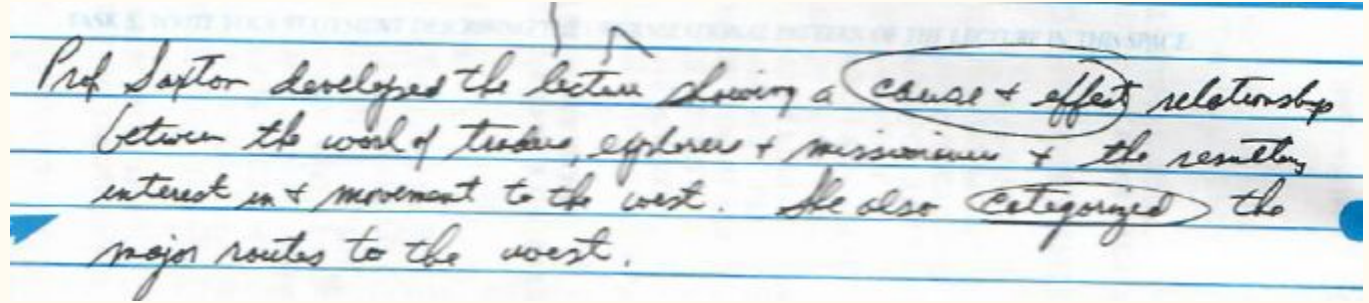 TASK 5. WRITE YOUR STATEMENT DESCRIBING THE ORGANIZATIONAL PATTERN OF THE LECTURE IN THIS SPACE.
Prof Saxton developed the lecture showing a cause + effect relationship
between the work of traders, explorers + missionaries + the resulting
interest in + movement to the west. She also categorized the
major routes to the west.